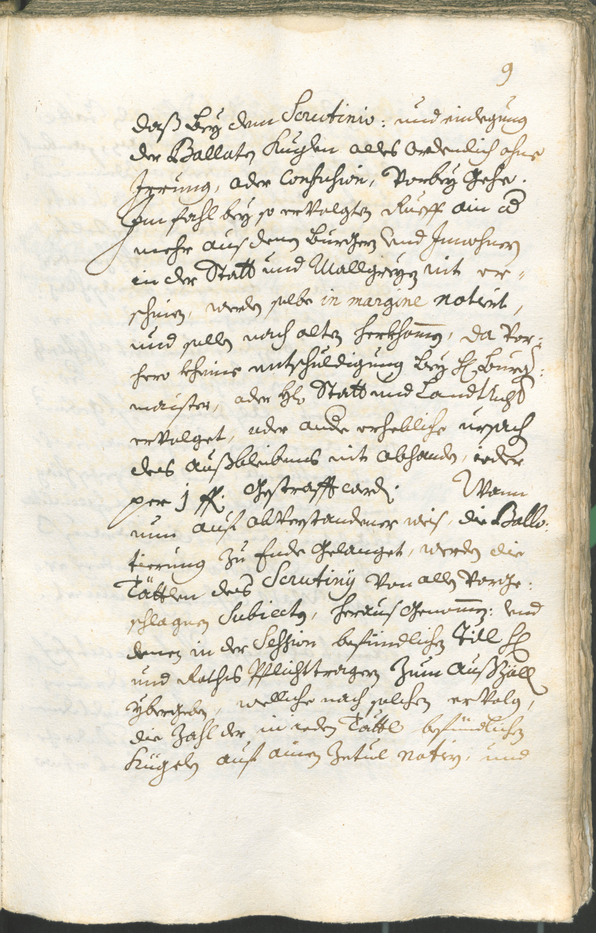 9
daß bey dem Scrutinio: und einlegung
der Ballaten Kuglen alles ordenlich ohne
Jrrung, oder Confusion, vorbey gehe.
Jm fahl bey so ervolgten Rueff ain od
mehr aus denen Burgern und Jnwohnern
in der Statt und Wallgreyen nit er-
scheinen, werden selbe in margine notirt,
und sollen nach alten herkhomen, da vor-
hero kheine entschuldigung bey H: Burger
maister, oder H: Statt und Landtricht
ervolget, oder ande erhebliche ursach
des ausbleibens nit obhanden, ieder
per 1 fl: gestrafft werden. Wann
nun auf obverstandener weis, die Ballo-
tierung zu Ende gelanget, werden die
Tättlen des Scrutinij von allen vorge-
schlagnen Subiectis, heraus genomen: und
denen in der Session befündlichen Titl H:
und Raths Pflichttragern zum Auszöll
ybergeben, welliche nach solchen ervolg,
die Zahl der in ieden Tättl befündlichen
Kuglen auf ainen Zetul notirn, und